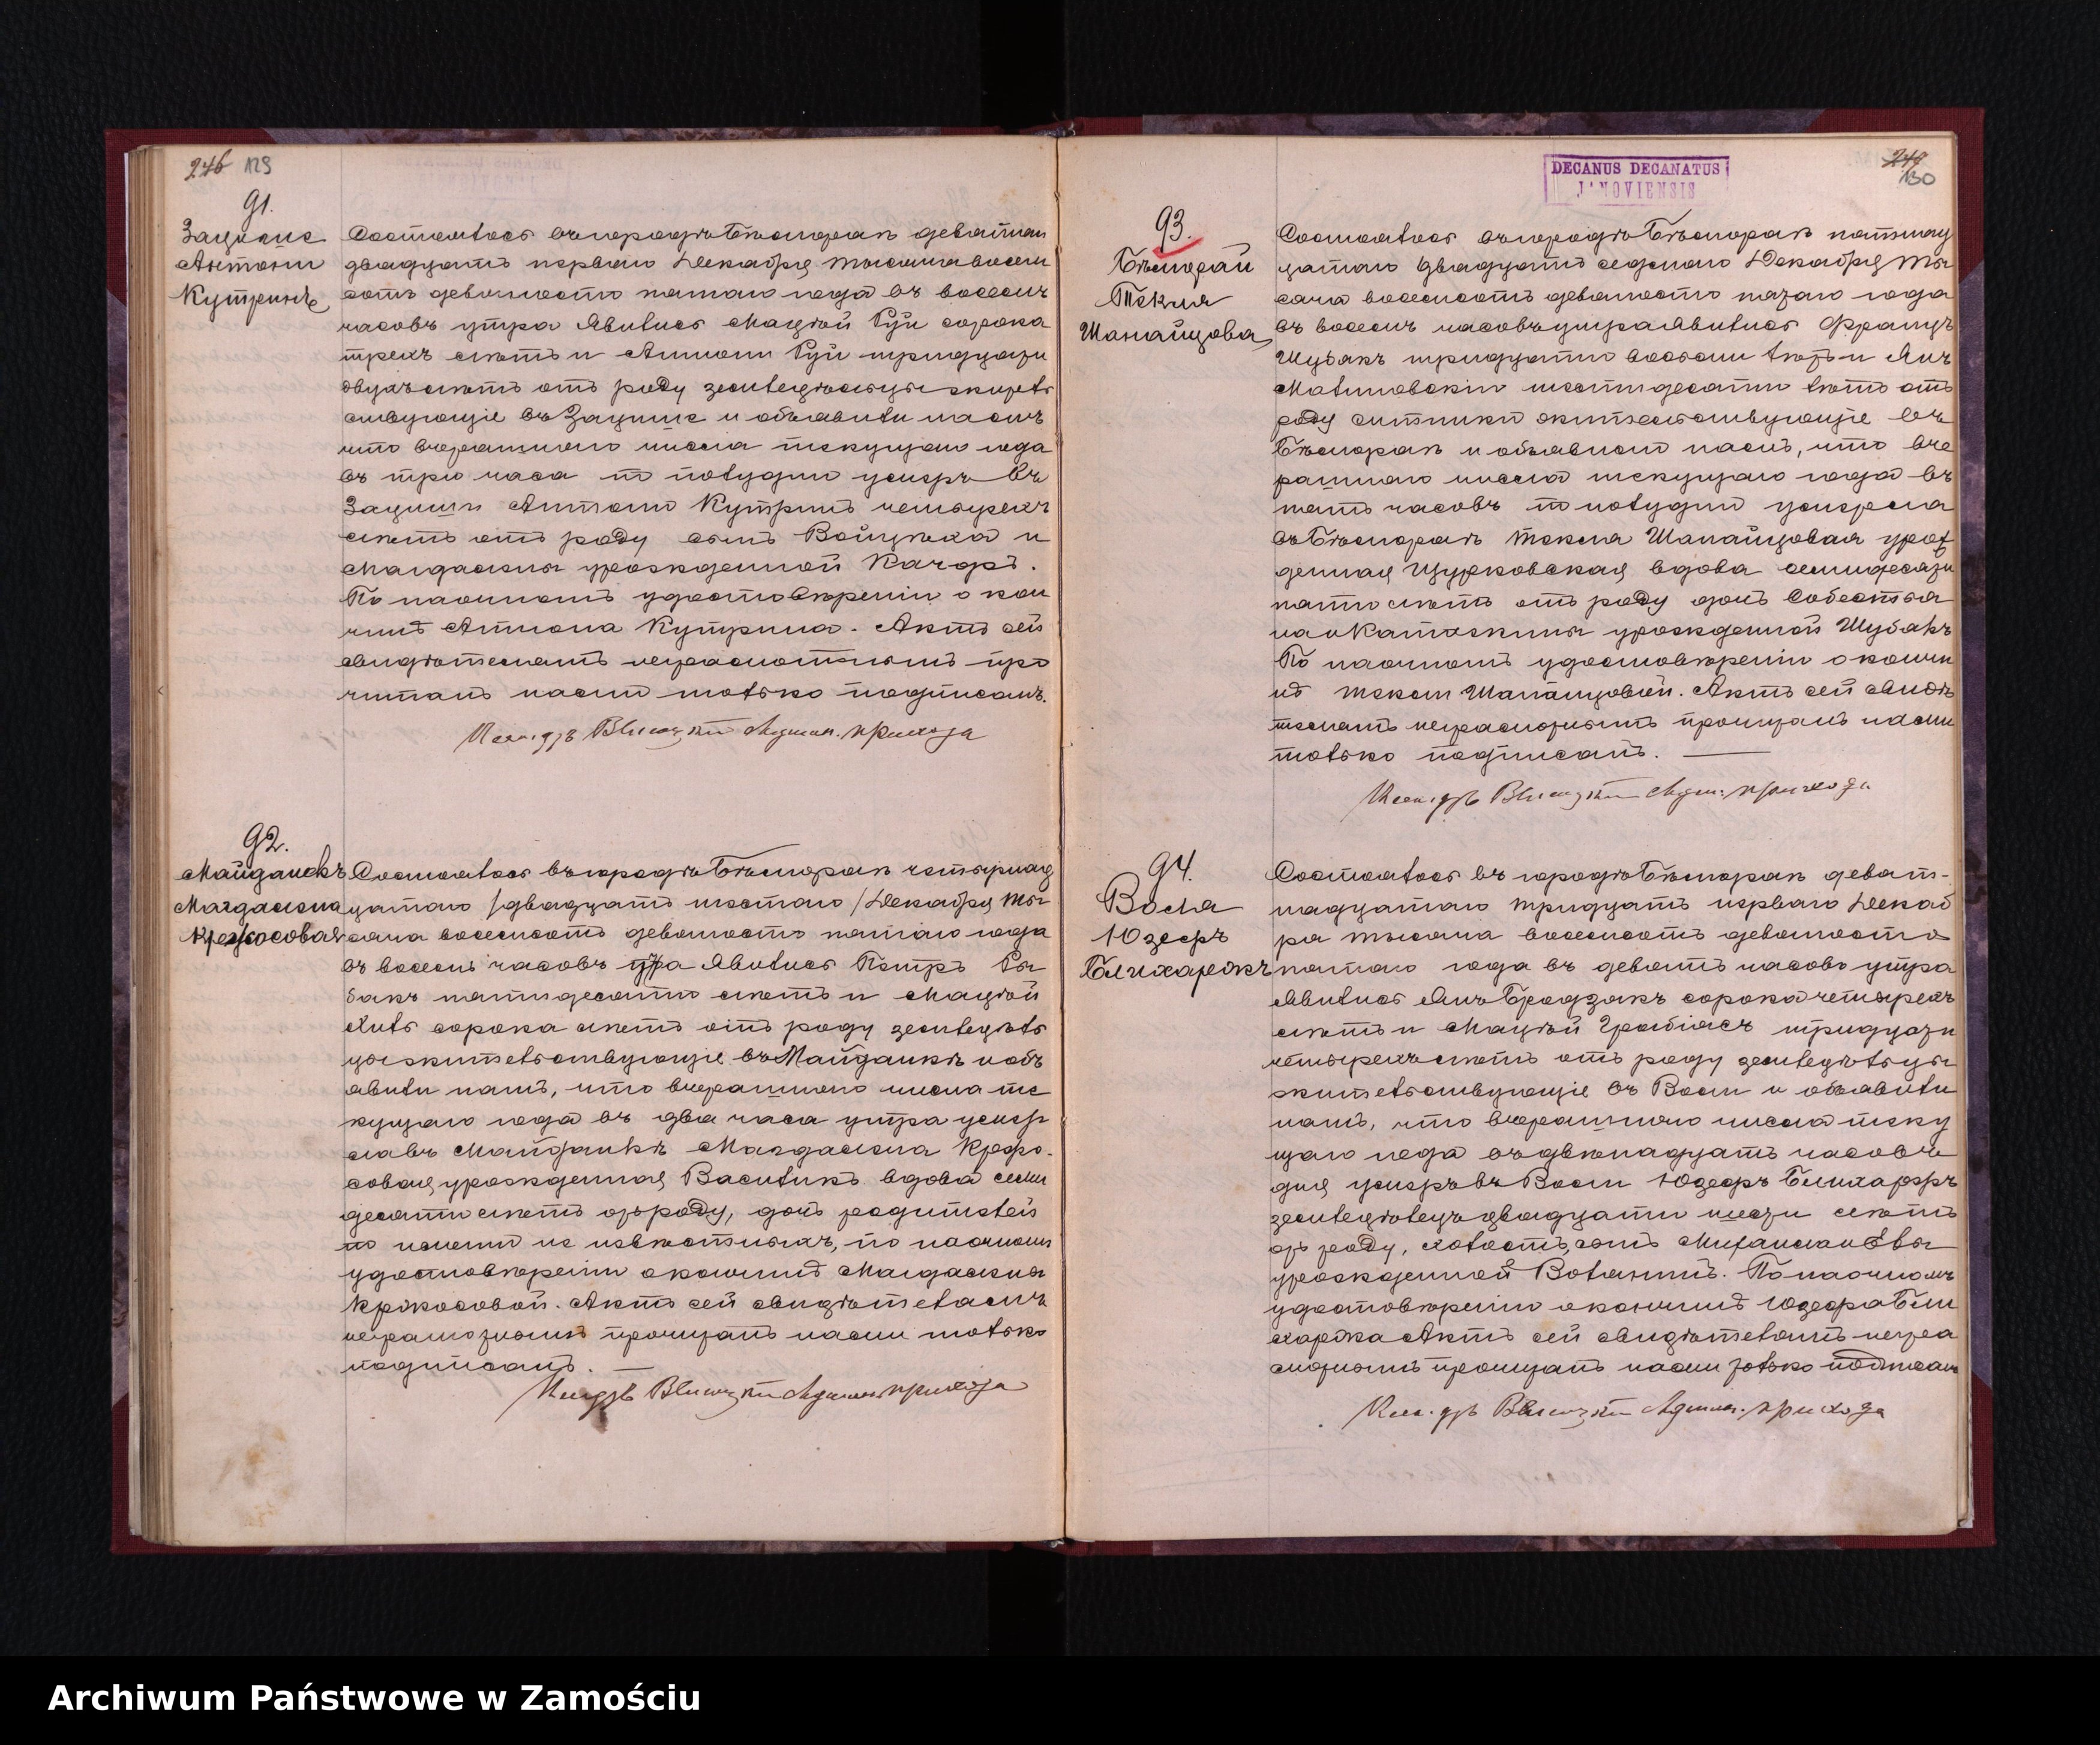 246 129
91.
Зацише
Антони
Кутринъ
Состоялось въ городѣ Бѣлгораѣ девятаго
двадцать перваго Декабря тысяча восем
сотъ девяносто пятаго года въ восемь
часовъ утра Явились Мацѣй Гуй сорока
трехъ лѣтъ и Антони Гуй тридцати
двухъ лѣтъ отъ роду земледѣльцы жительствующіе въ Зацише и объявили намъ
что вчерашняго числа текущаго года
въ три часа по полудни умеръ въ
Зациши Антони Кутринъ четырехъ
лѣтъ отъ роду сынъ Войцѣха и
Магдалены урожденной Качоръ.
По наочномъ удостовѣреніи о кон
чинѣ Антона Кутрина. Актъ сей
свидѣтелямъ неграмотнымъ про
читанъ нами только подписанъ.
Ксендзъ Админ. прихода
92.
Майданекъ
Магдалена
Состоялось въ городѣ Бѣлгораѣ четырнад
цатаго /двадцать шестаго/ Декабря ты
сяча восемсотъ девяносто пятаго года
въ восемь часовъ утра Явились Петръ Ры
бакъ пятидесяти лѣтъ и Мацѣй
сорока лѣтъ отъ роду земледѣль
цы жительствующіе въ Майданкѣ и объ
явили намъ, что вчерашняго числа те
кущаго года въ два часа утра умер
ла въ Майданкѣ Магдалена
урожденная Василикъ вдова семи
десяти лѣтъ отъ роду, дочь родителей
по имени не извѣстныхъ, по наочномъ
удостовѣреніи о кончинѣ Магдалены
Актъ сей свидѣтелямъ
неграмотнымъ прочитанъ нами только
подписанъ.
Ксендзъ Админ. прихода
DECANUS DECANATUS
J*NOVIENSIS
130
93.
Бѣлгорай
Текля
Шанайцова
Состоялось въ городѣ Бѣлгораѣ пятнад
цатаго двадцать седмаго Декабря ты
сяча восемсотъ девяносто пятаго года
въ восемь часовъ утра Явились Францъ
Шубакъ тридцати восьми лѣтъ и Янъ
Малиновскій шестидесяти лѣтъ отъ
роду ситники жительствующіе въ
Бѣлгораѣ и объявили намъ, что вче
рашняго числа текущаго года въ
пять часовъ по полудни умерла
въ Бѣлгораѣ Текля Шанайцовая урож
денная Щурковская вдова семидесяти
пяти лѣтъ отъ роду дочь Собестья
на и Катажины урожденной Шубакъ
По наочномъ удостовѣреніи о кончи
нѣ Текли Шанайцовой. Актъ сей свидѣ
телямъ неграмотнымъ прочитанъ нами
только подписанъ.
Ксендзъ Адми. прихода
94.
Воля
Юзефъ
Блихаржъ
Состоялось въ городѣ Бѣлгораѣ девят-
надцатаго тридцать перваго Декаб
ря тысяча восемсотъ девяносто
пятаго года въ девять часовъ утра
Явились Янъ Бродзякъ сорока четырехъ
лѣтъ и Мацѣй Грабіасъ тридцати
четырехъ лѣтъ отъ роду земледѣльцы
жительствующіе въ Воли и объявили
намъ, что вчерашняго числа теку
щаго года въ двѣнадцать часовъ
дня умеръ въ Воли Юзефъ Блихаржъ
земледѣлецъ двадцати шести лѣтъ
отъ роду, холостъ, сынъ и Евы
урожденной Волянинъ. По наочномъ
удостовѣреніи о кончинѣ Юзефа Бли
харжа Актъ сей свидѣтелямъ негра
мотнымъ прочитанъ нами только подписанъ
Ксендзъ Админ. прихода
Archiwum Państwowe w Zamościu